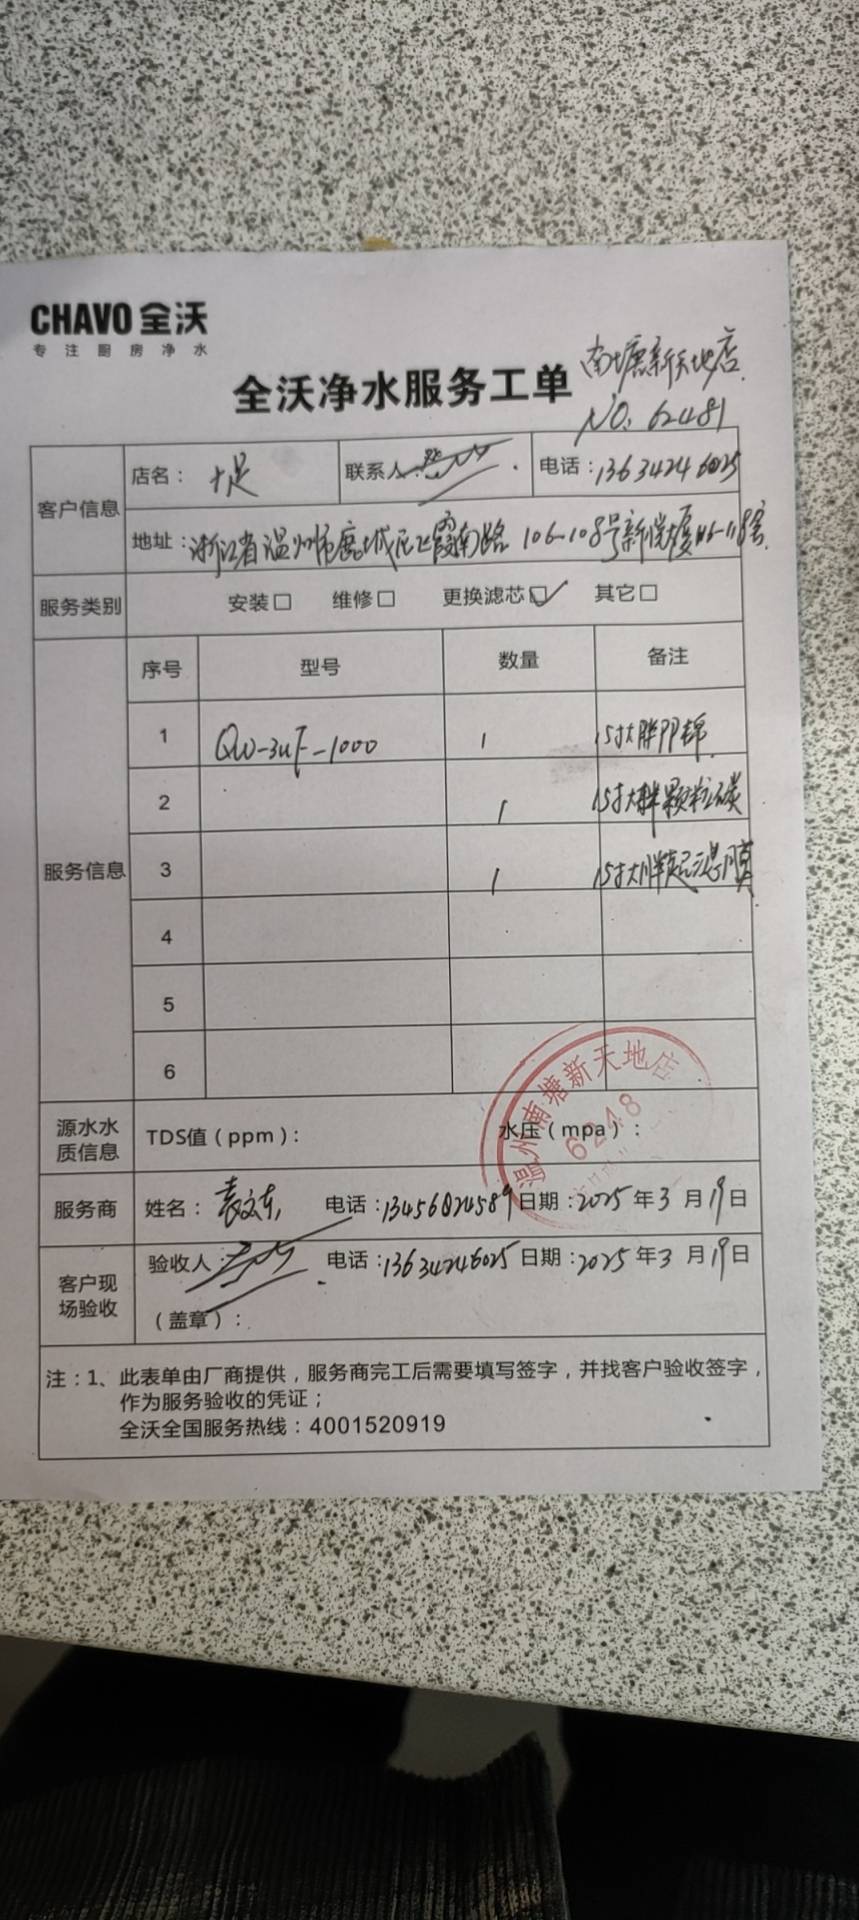 CHAVO 全沃
专注厨房净水
南塘新天地店
全沃净水服务工单
NO. 62481
客户信息 店名： 十足 联系人： 电话：13634246025
地址：浙江省温州市鹿城区飞霞南路 106-108号新悦大厦
服务类别 安装□ 维修□ 更换滤芯☑ 其它□
服务信息 序号 型号 数量 备注
1 QW-3UF-1000 1 15寸大胖PP棉
2 1 15寸大胖颗粒碳
3 1 15寸大胖超滤膜
4
5
6
温州南塘新天地店
6248
源水水质信息 TDS值（ppm）： 水压（mpa）：
服务商 姓名： 袁文东 电话：13456024589 日期：2025 年 3 月 19 日
客户现场验收 验收人： 电话：13634246025 日期：2025 年 3 月 19 日
（盖章）：
注：1、此表单由厂商提供，服务商完工后需要填写签字，并找客户验收签字，
作为服务验收的凭证；
全沃全国服务热线：4001520919